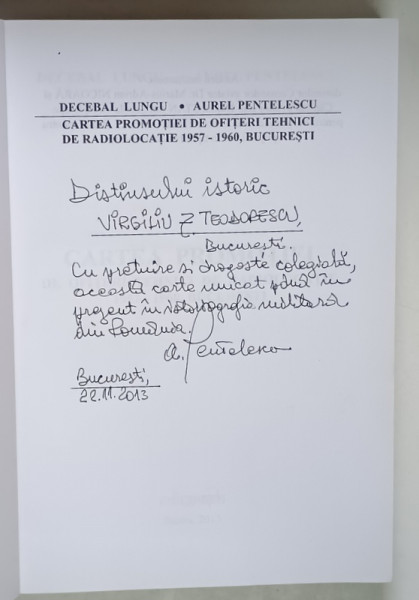 DECEBAL LUNGU • AUREL PENTELESCU
CARTEA PROMOȚIEI DE OFIȚERI TEHNICI
DE RADIOLOCAȚIE 1957 - 1960, BUCUREȘTI
Distinsului istoric
VIRGILIU Z. TEODORESCU,
București.
Cu prețuire si dragoste colegială,
această carte unicat până în
prezent în istoriografia militară
din România.
A. Pentelescu
București,
22.11.2013